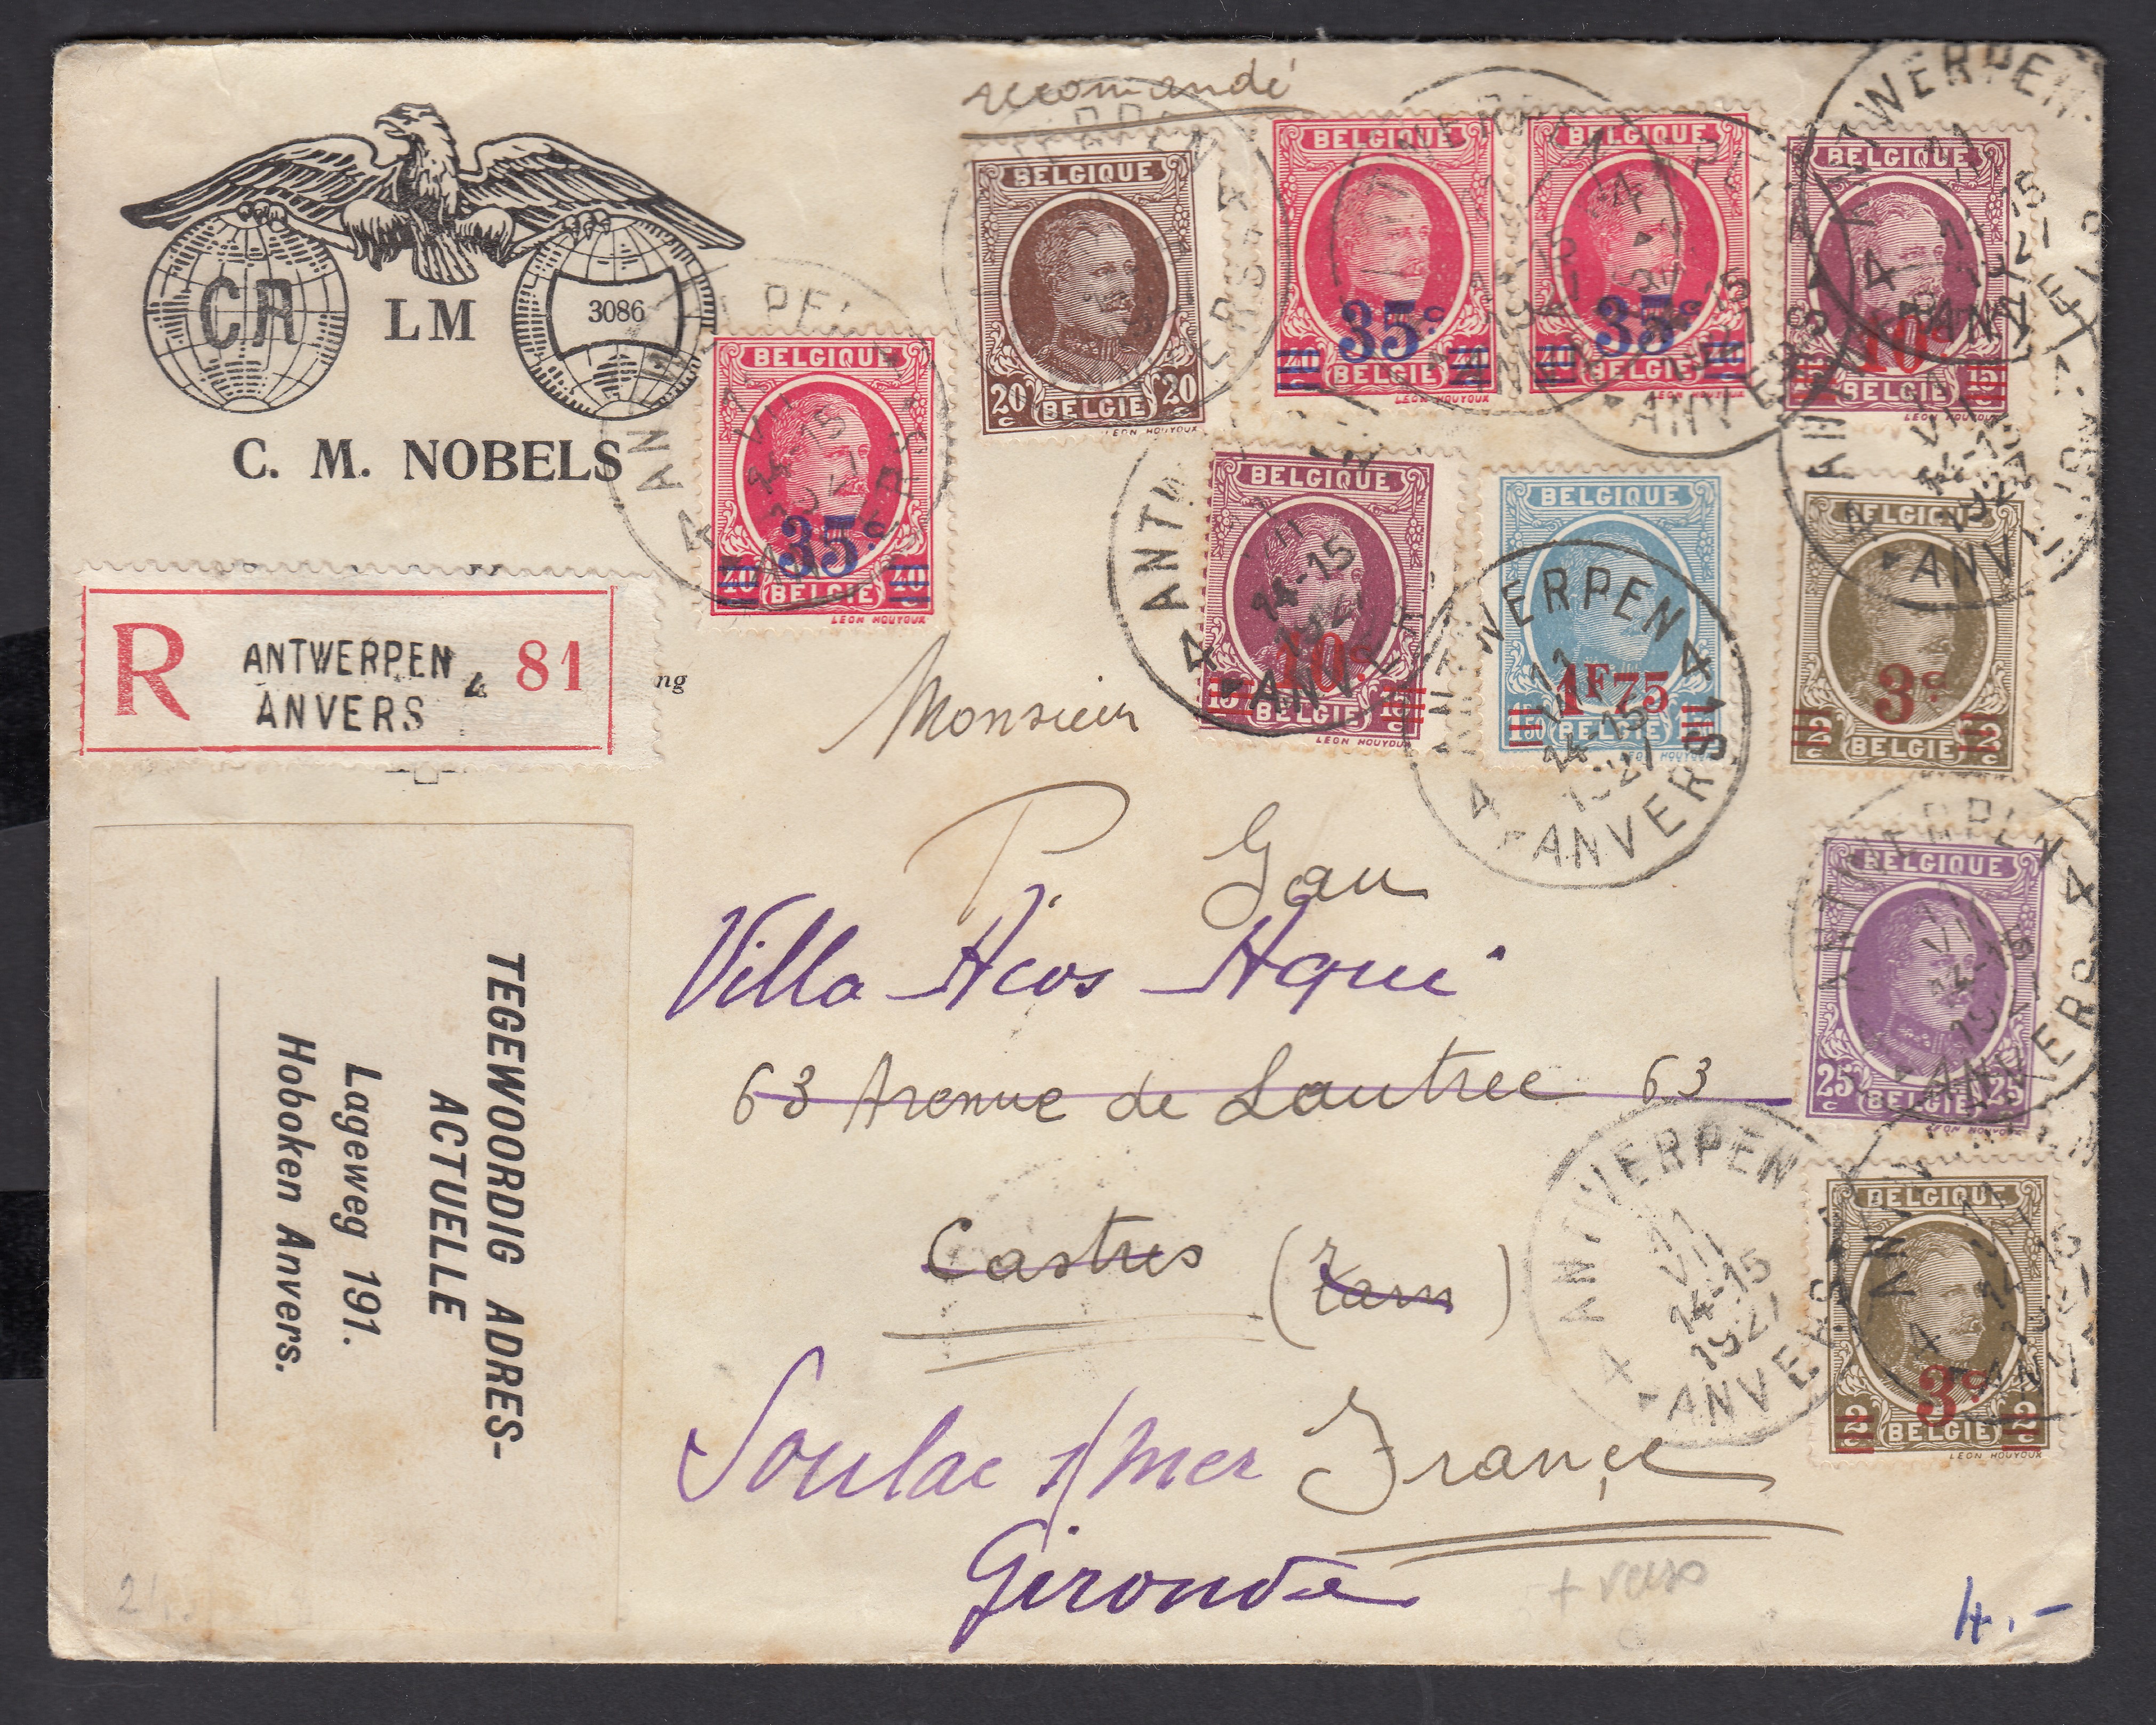 recommandé
CR LM 3086
C. M. NOBELS
R ANTWERPEN 4 81
ANVERS
ng
BELGIQUE
35c
40 BELGIE 40
LEON HOUYOUX
BELGIQUE
20 BELGIE 20
c c
LEON HOUYOUX
BELGIQUE
35c
40 BELGIE 40
LEON HOUYOUX
BELGIQUE
35c
40 BELGIE 40
LEON HOUYOUX
BELGIQUE
10c
15 BELGIE 15
LEON HOUYOUX
BELGIQUE
10c
15 BELGIE 15
LEON HOUYOUX
BELGIQUE
1F75
150 BELGIE
HOUYOUX
BELGIQUE
3c
2 BELGIE 2
c c
BELGIQUE
25 BELGIE 25
c
LEON HOUYOUX
BELGIQUE
3c
2 BELGIE 2
c c
LEON HOUYOUX
ANTWERPEN 4
11
VII
14-15
1927
4 ANVERS
Monsieur
P. Gau
Villa
63 Avenue de Lautrec 63
Castres (Tarn)
Soulac s/mer France
Gironde
TEGEWOORDIG ADRES-
ACTUELLE
Lageweg 191.
Hoboken Anvers.
+ verso
4.-